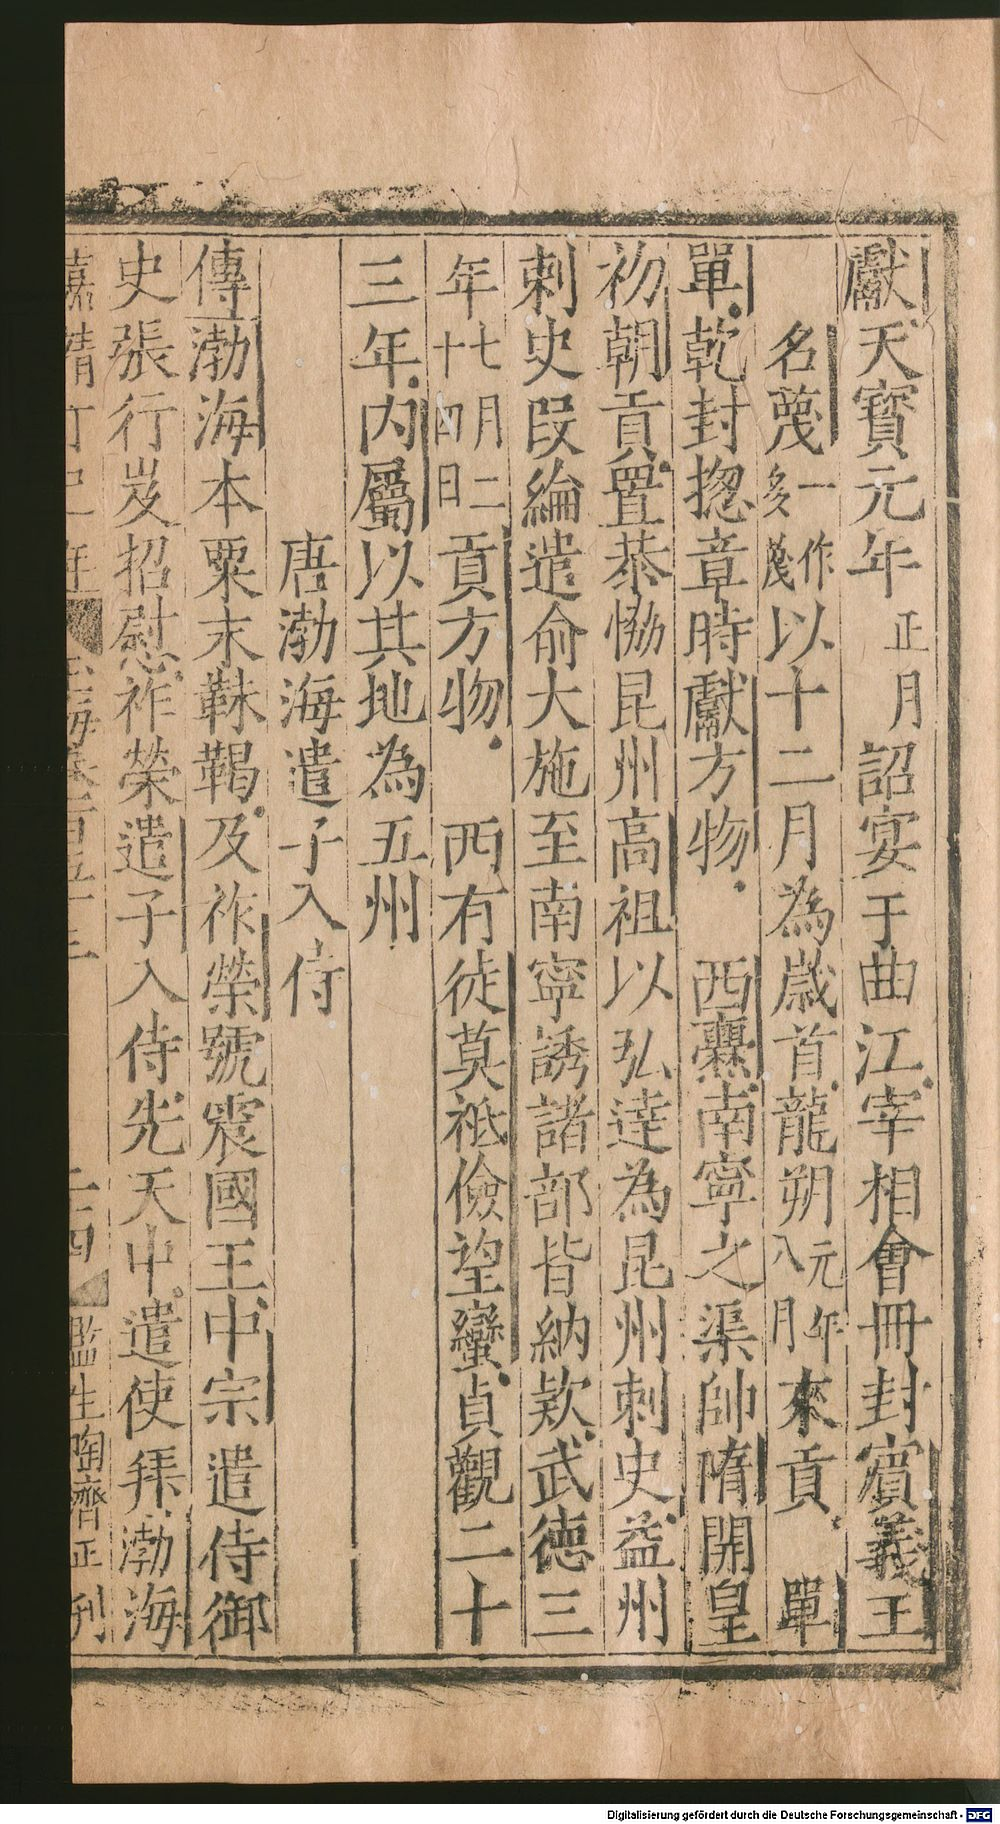 獻天寶元年正月詔宴于曲江宰相會冊封賓義王
名蔑一作多蔑以十二月為歲首龍朔元年八月來貢 單
單乾封揔章時獻方物 西爨南寧之渠帥隋開皇
初朝貢置恭恊昆州高祖以弘達為昆州刺史益州
刺史段綸遣俞大施至南寧誘諸部皆納欵武德三
年七月二十四日貢方物 西有徒莫祗儉望蠻貞觀二十
三年內屬以其地為五州
唐渤海遣子入侍
傳渤海本粟末靺鞨及祚榮號震國王中宗遣侍御
史張行岌招慰祚榮遣子入侍先天中遣使拜渤海
嘉靖丁巳年 玉海卷一百五十三 二十四 監生陶濟正刊
Digitalisierung gefördert durch die Deutsche Forschungsgemeinschaft - DFG